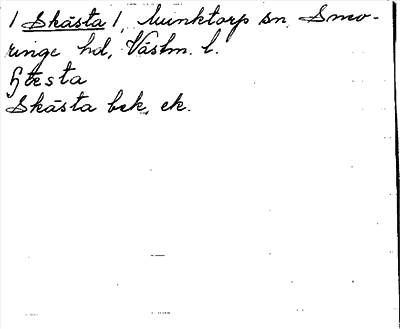 1 Skästa 1, Munktorp sn, Snev-
ringe hd, Västm. l.
Skästa bek, ek.